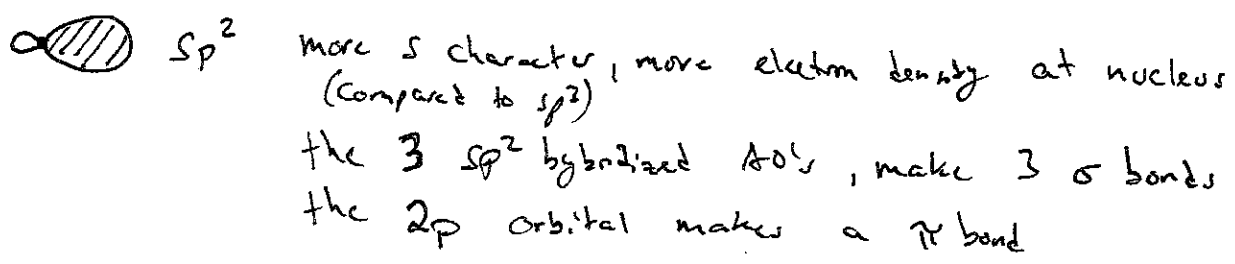 sp² more s character, more electron density at nucleus
(compared to sp³)
the 3 sp² hybridized AO's, make 3 σ bonds
the 2p orbital makes a π bond